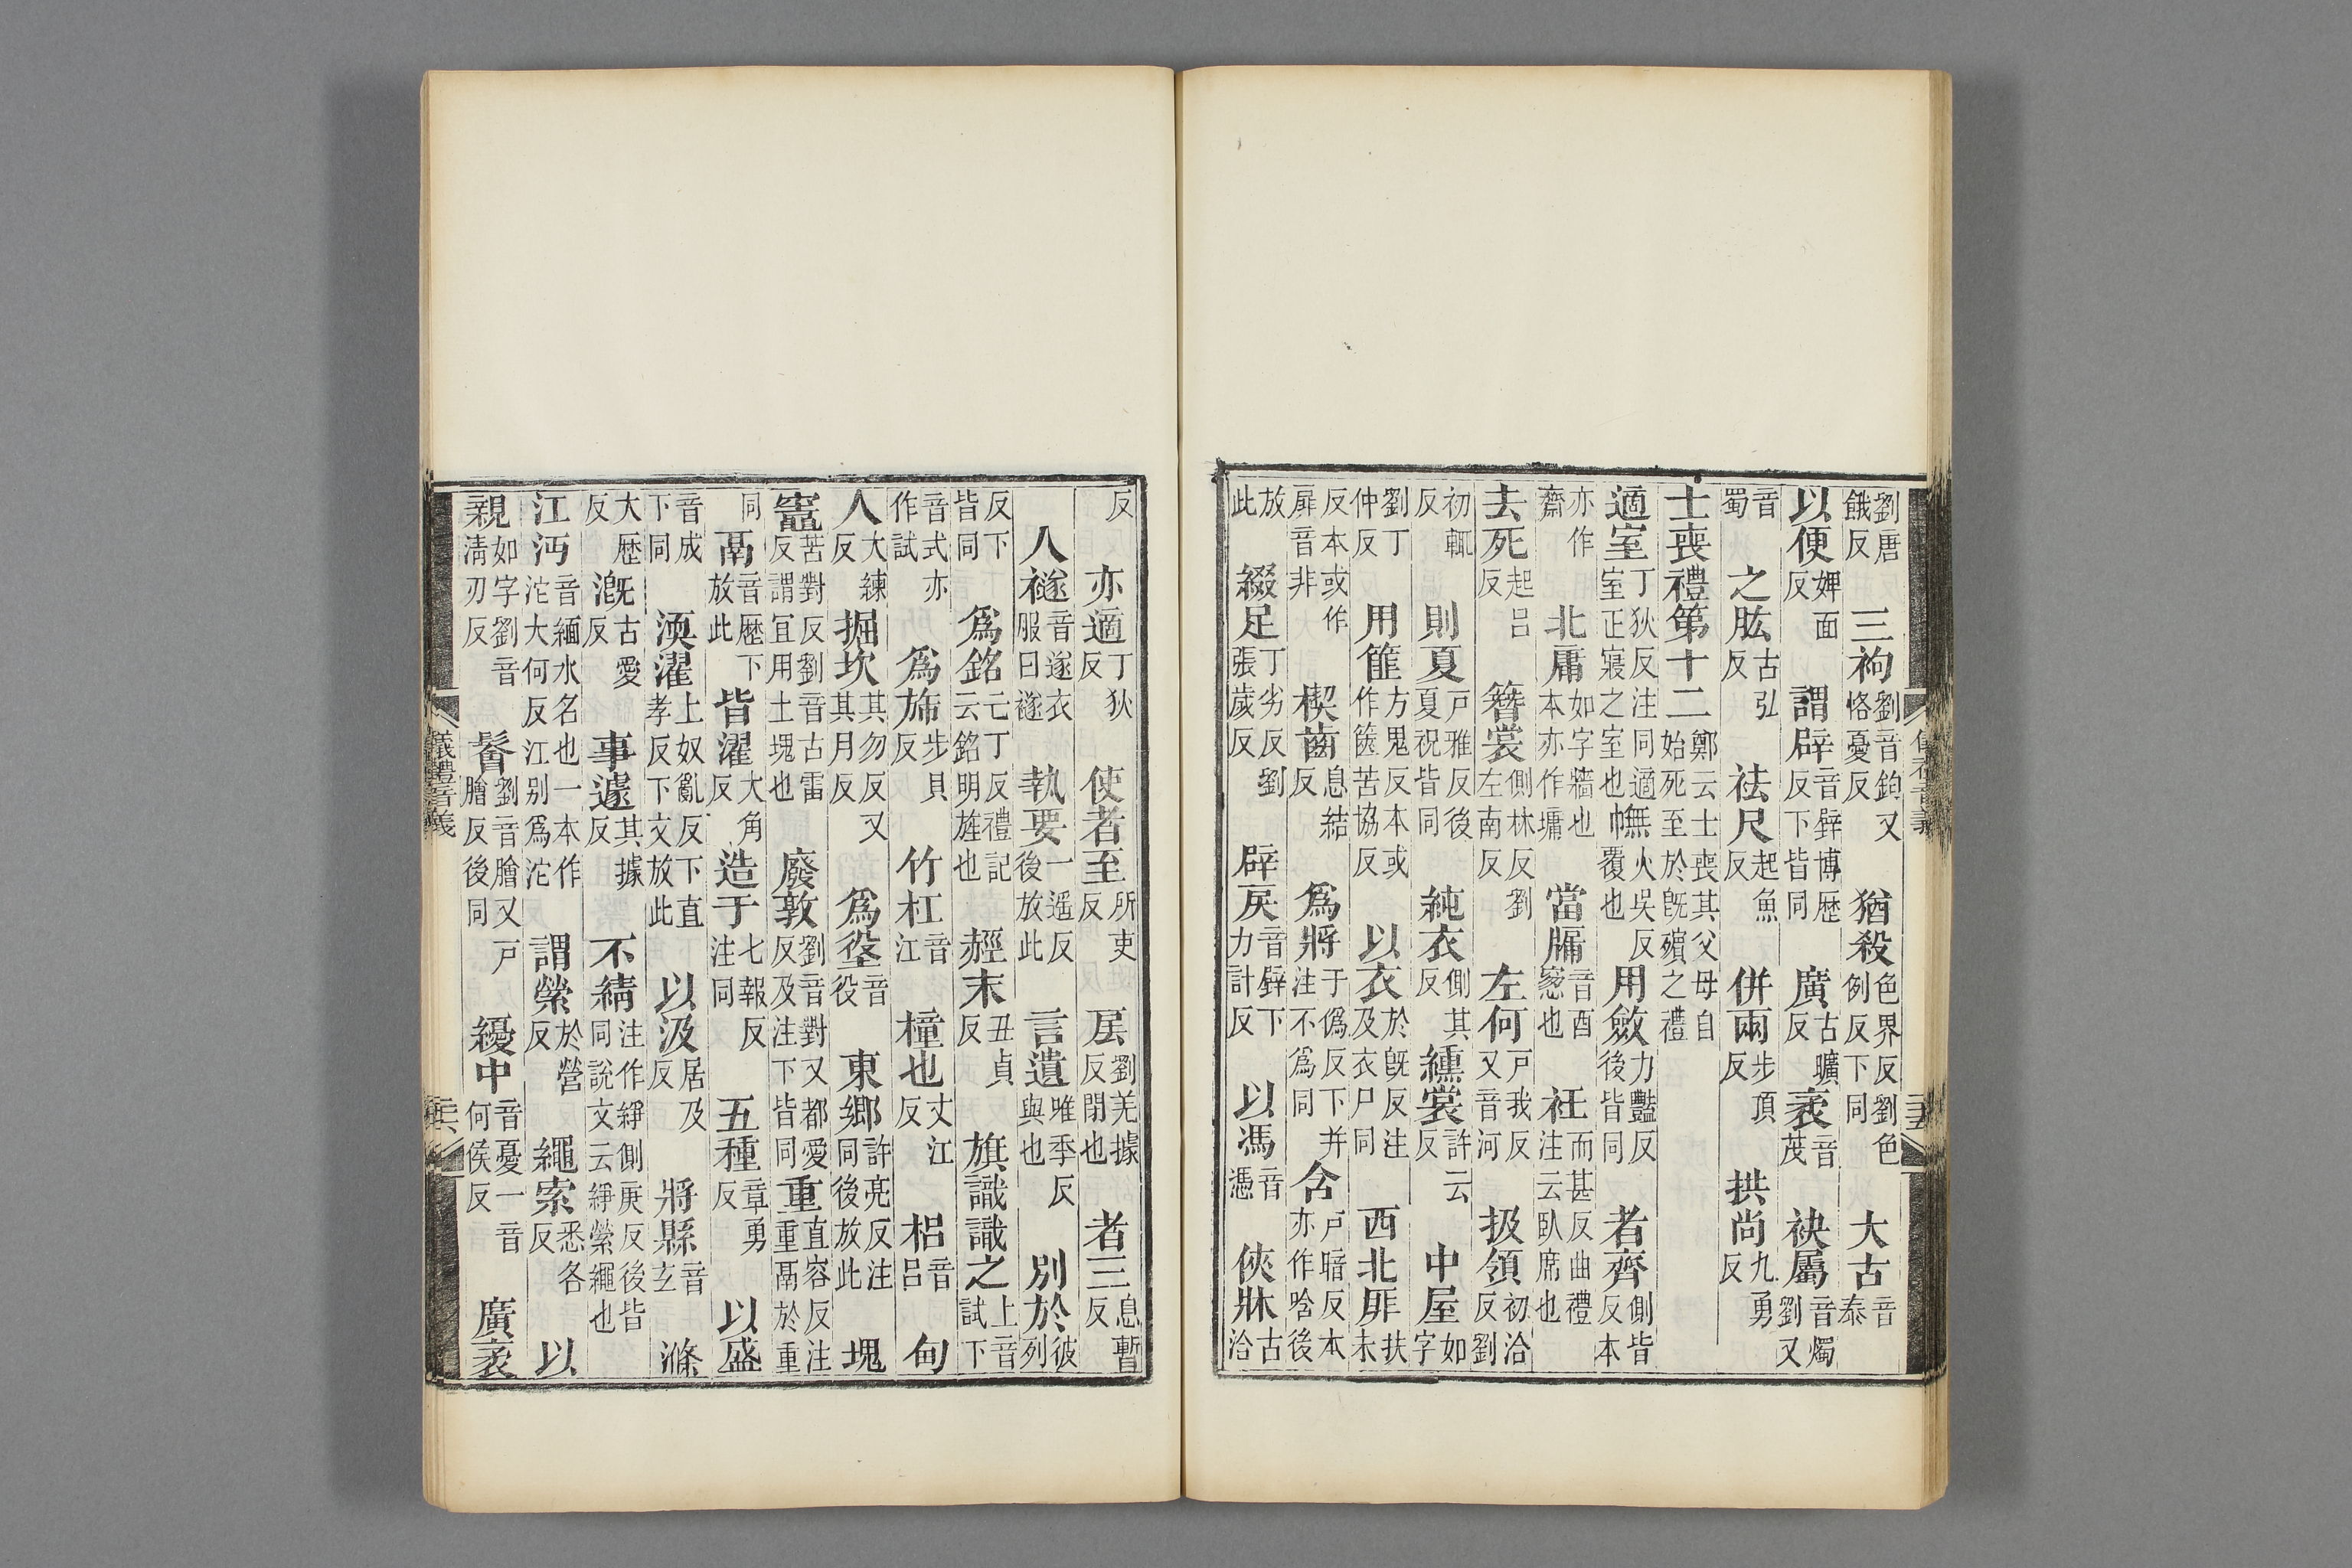 劉唐餓反 三袧劉音鉤又恪憂反 猶殺色界反劉色例反下同 大古音泰
以便婢面反 謂辟音壁博歷反下皆同 廣古曠反 袤音茂 袂屬音燭劉又
音蜀 之肱古弘反 袪尺起魚反 併兩步頂反 拱尚九勇反
士喪禮第十二鄭云士喪其父母自始死至於既殯之禮
適室丁狄反注同適室正寢之室也 幠火吳反覆也 用斂力豔反後皆同 者齊側皆反本
亦作齋 北庸如字牆也本亦作墉 當牖音酉窻也 衽而甚反曲禮注云臥席也
去死起呂反 簪裳側林反劉左南反 左何戸我反又音河 扱領初洽反劉
初輒反 則夏戸雅反後夏祝皆同 純衣側其反 纁裳許云反 中屋如字
劉丁仲反 用篚方鬼反本或作篋苦協反 以衣於既反注及衣尸同 西北厞扶未
反本或作扉音非 楔齒息結反 爲將于僞反下并注不爲同 含戸暗反本亦作唅後
放此 綴足丁劣反劉張歲反 辟戾音壁下力計反 以馮音憑 俠牀古洽
反 亦適丁狄反 使者至所吏反 㞐劉羌據反閉也 者三息暫反
人襚音遂衣服曰襚 執要一遥反後放此 言遺唯季反與也 別於彼列
反下皆同 爲銘亡丁反禮記云銘明旌也 䞓末丑貞反 旗識識之上音試下
音式亦作試 爲斾步貝反 竹杠音江 橦也丈江反 梠音吕 甸
人大練反 掘坎其勿反又其月反 爲垼音役 東鄉許亮反注同後放此 塊
竈苦對反劉音古雷反謂宜用土塊也 廢敦劉音對又都愛反及注下皆同 重直容反注重鬲於重
同 鬲音歷下放此 皆濯大角反 造于七報反注同 五種章勇反 以盛
音成下同 渜濯上奴亂反下直孝反下文放此 以汲居及反 將縣音玄 滌
大歷反 漑古愛反 事遽其據反 不綪注作絣側庚反後皆同說文云絣縈繩也
江沔音緬水名也一本作沱大何反江别爲沱 謂縈於營反 繩索悉各反 以
親如字劉音淸刃反 鬠劉音膾又戸膾反後同 纋中音憂一音何侯反 廣袤
儀禮音義